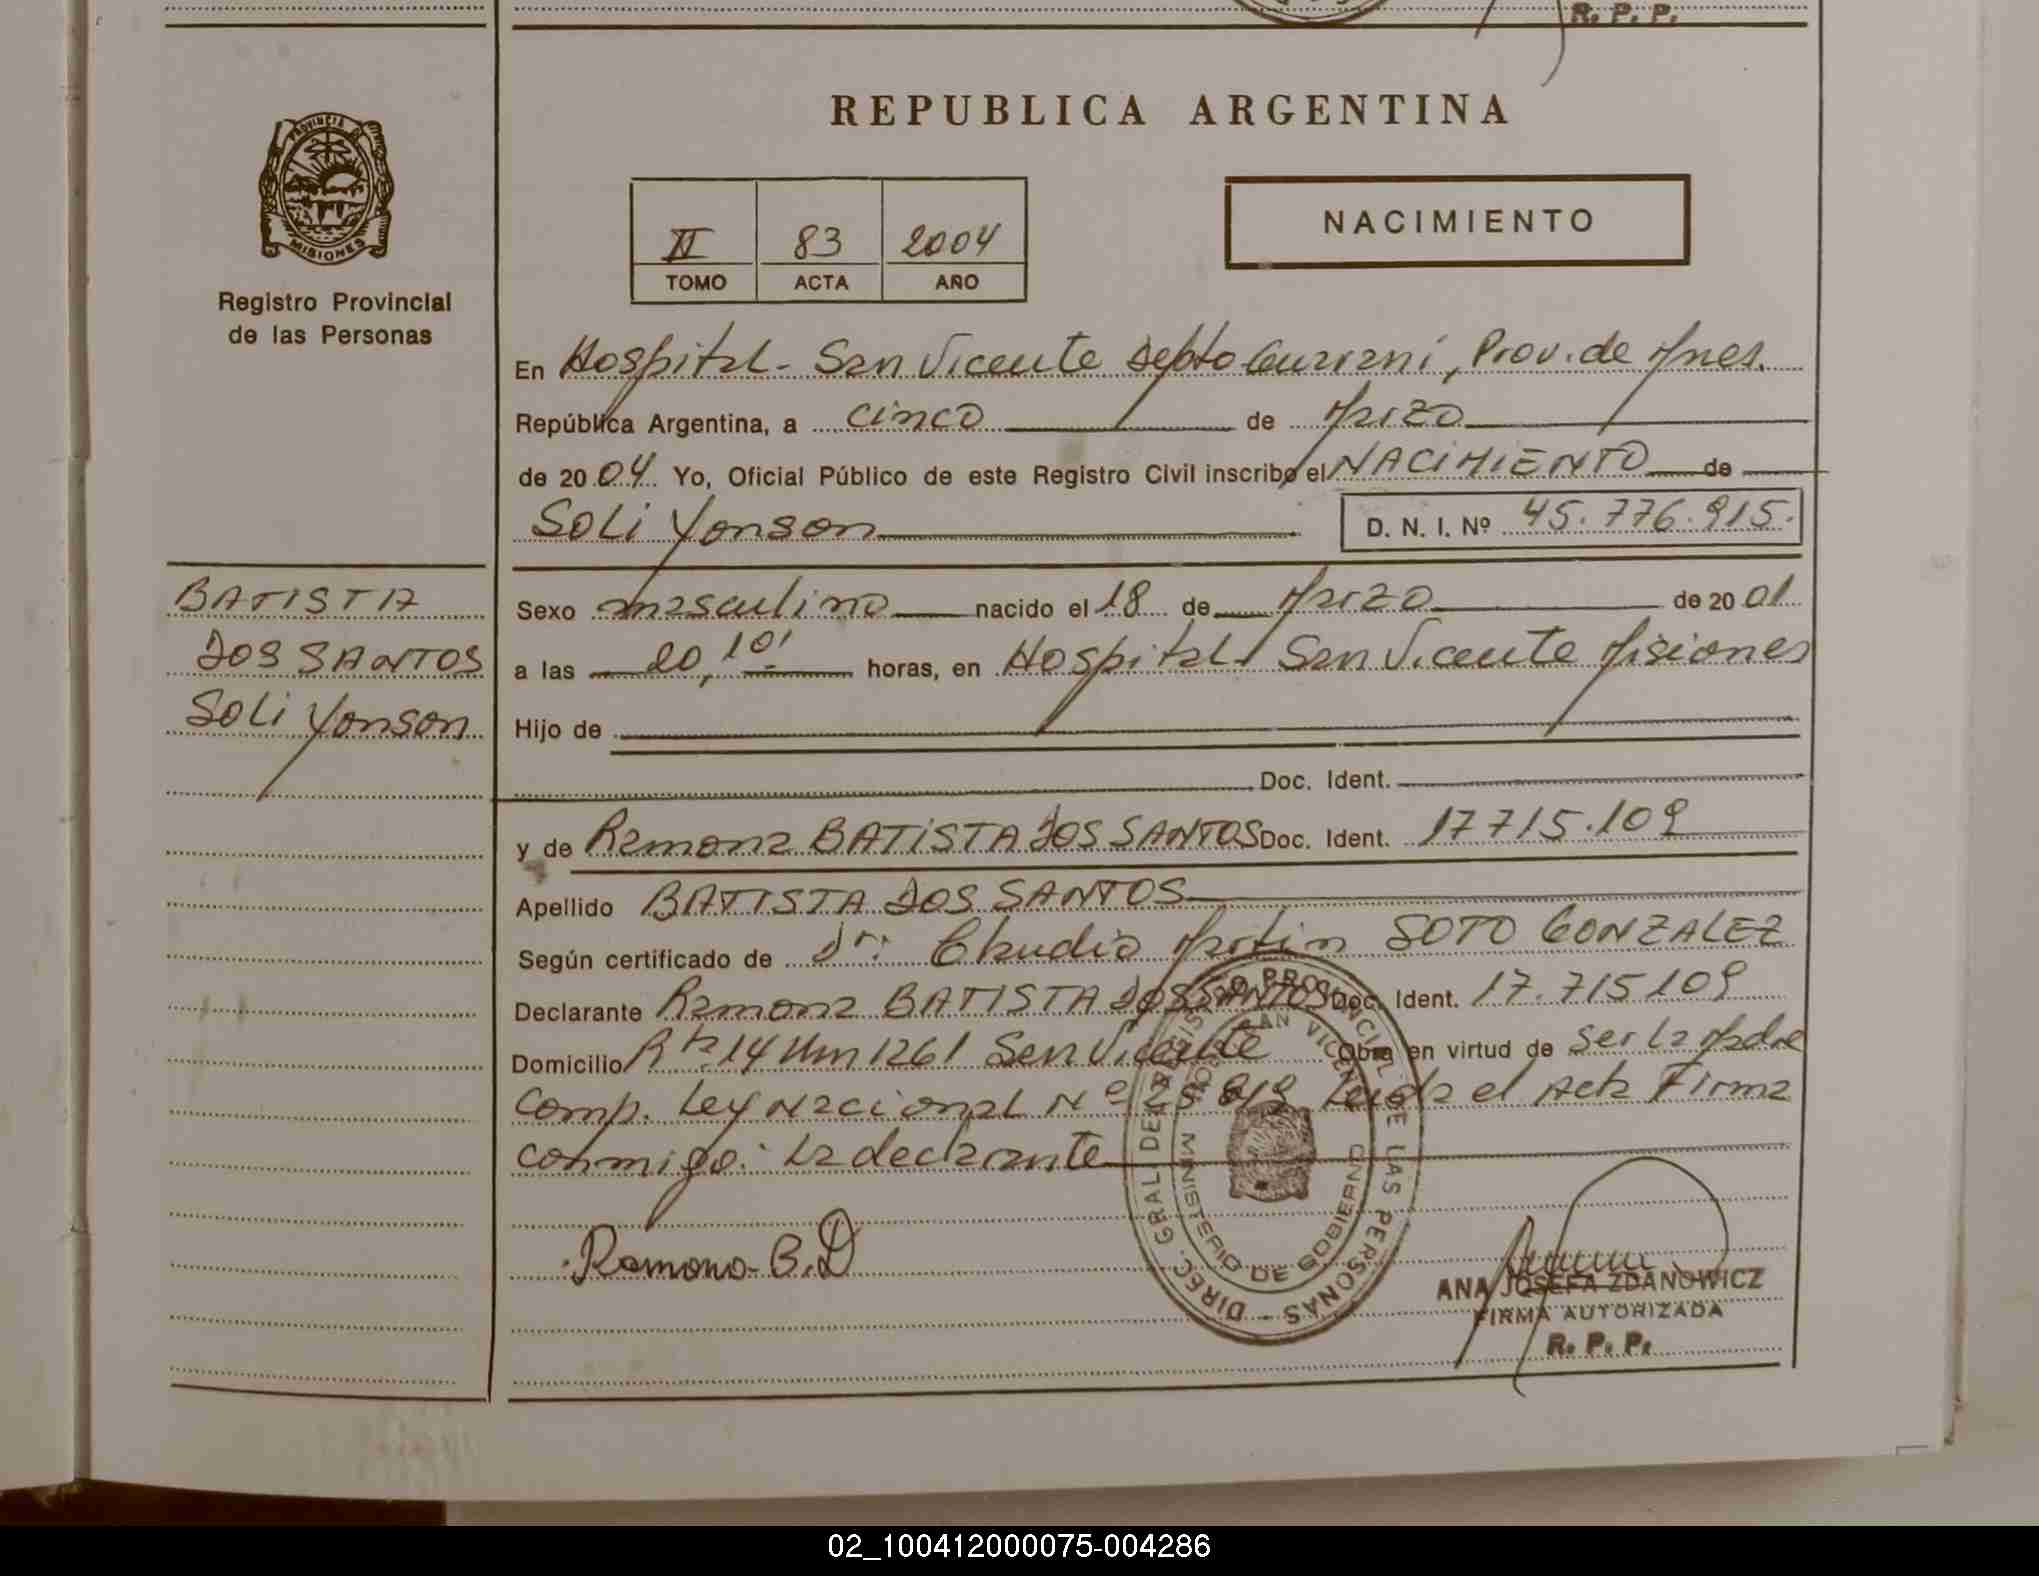 R. P. P.
REPUBLICA ARGENTINA
NACIMIENTO
II 83 2004
TOMO ACTA AÑO
PROVINCIA DE
MISIONES
Registro Provincial
de las Personas
En Hospital - San Vicente Depto Guarani, Prov. de Mnes.
República Argentina, a cinco de Marzo
de 2004 Yo, Oficial Público de este Registro Civil inscribo el NACIMIENTO de
Soli Yonson D. N. I. Nº 45.776.915.
BATISTA
DOS SANTOS
Soli Yonson
Sexo masculino nacido el 18 de Marzo de 2001
a las 20,10' horas, en Hospital - San Vicente Misiones
Hijo de
Doc. Ident.
y de Ramona BATISTA DOS SANTOS Doc. Ident. 17715.109
Apellido BATISTA DOS SANTOS
Según certificado de Dr. Claudio Martin SOTO GONZALEZ
Declarante Ramona BATISTA DOS SANTOS Doc. Ident. 17.715109
Domicilio Rta 14 Km 1261 San Vicente Obra en virtud de ser la Madre
Comp. Ley Nacional Nº 25 819 Leida el Acta Firma
conmigo: la declarante
Ramona B.D
DIREC. GRAL. DEL REGISTRO PROVINCIAL DE LAS PERSONAS -
SAN VICENTE
MINISTERIO DE GOBIERNO
ANA JOSEFA ZDANOWICZ
FIRMA AUTORIZADA
R. P. P.
02_100412000075-004286